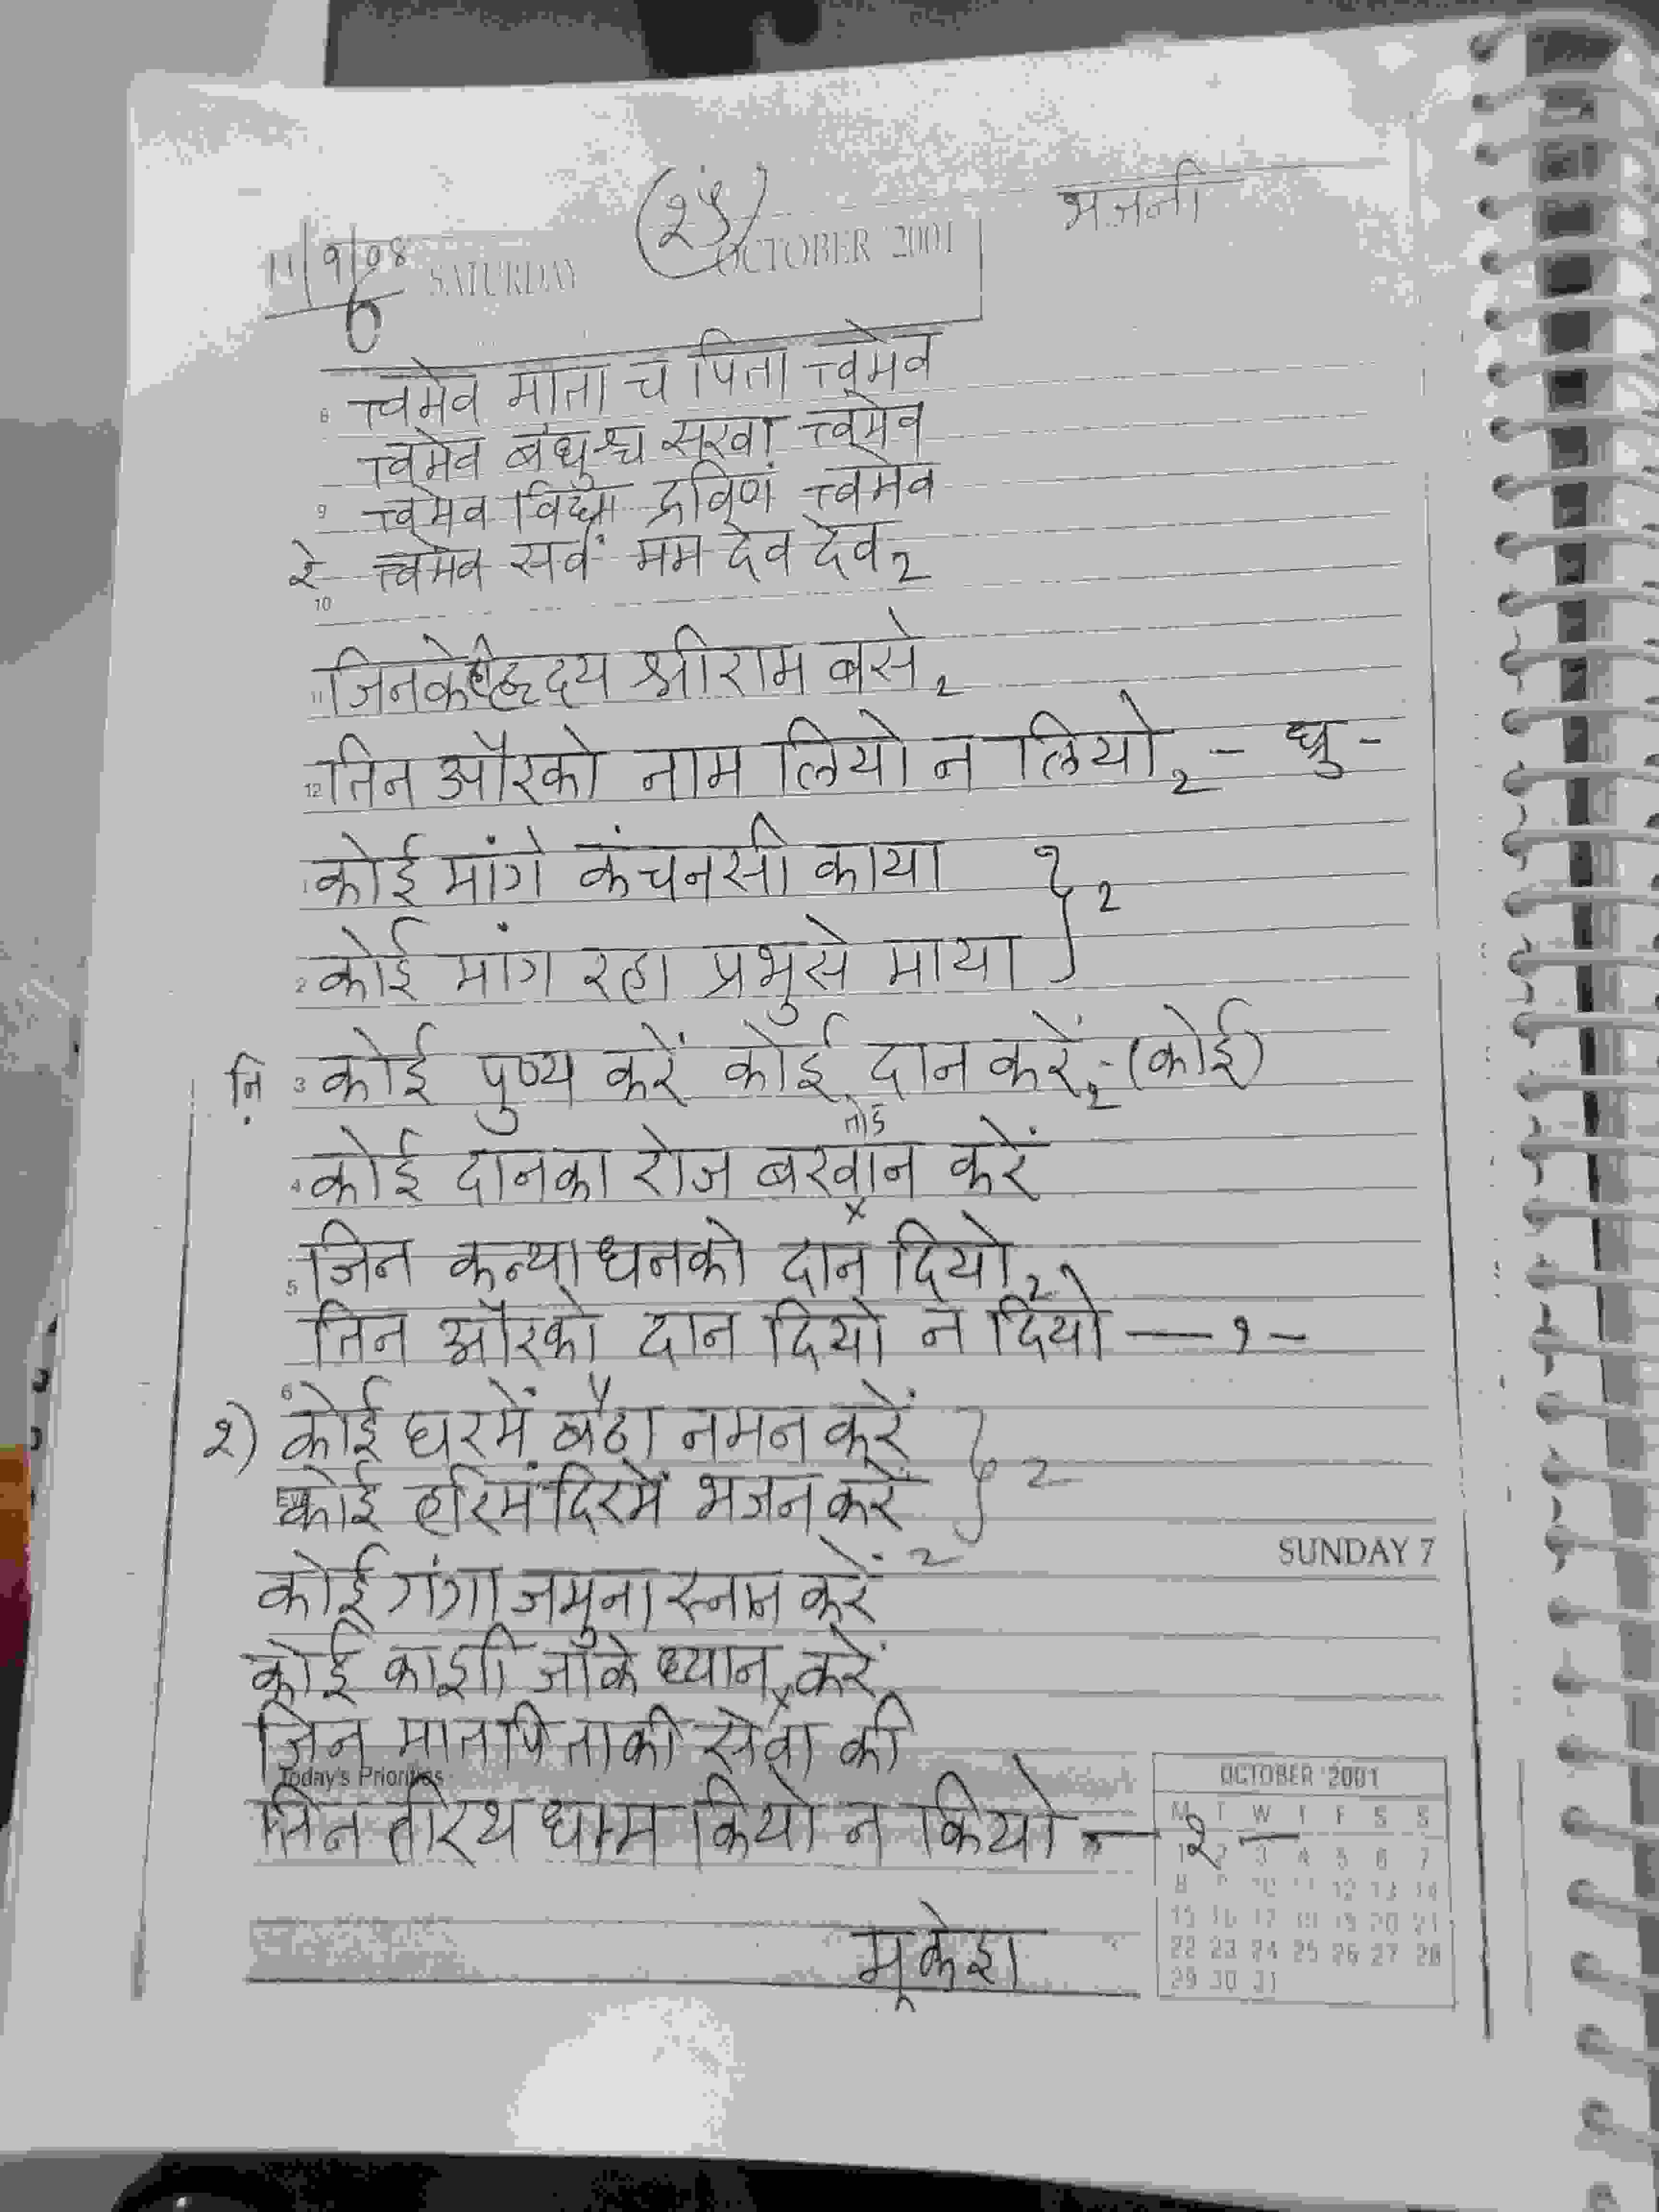 (२५) भजनी
11/9/08
6 SATURDAY OCTOBER 2001
त्वमेव माता च पिता त्वमेव
8
त्वमेव बंधुश्च सखा त्वमेव
9 त्वमेव विद्या द्रविणं त्वमेव
२ त्वमेव सर्वं मम देव देव 2
10
11 जिनके हृदय श्रीराम बसे 2
12 तिन औरको नाम लियो न लियो 2 - ध्रु -
1 कोई मांगे कंचनसी काया } 2
2 कोई मांग रहा प्रभुसे माया
नि 3 कोई पुण्य करें कोई दान करें 2 - (कोई)
4 कोई दानका रोज बखान करें
x
5 जिन कन्याधनको दान दियो 2
तिन औरको दान दियो न दियो — १ -
6
२) कोई घरमें बैठा नमन करें } 2
कोई हरिमंदिरमें भजन करें
SUNDAY 7
कोई गंगा जमुना स्नान करें 2
कोई काशी जाके ध्यान करें
x
जिन मातपिताकी सेवा की
Today's Priorities
तिन तीरथ धाम कियो न कियो — २ —
मूकेश
OCTOBER 2001
M T W T F S S
1 2 3 4 5 6 7
8 9 10 11 12 13 14
15 16 17 18 19 20 21
22 23 24 25 26 27 28
29 30 31